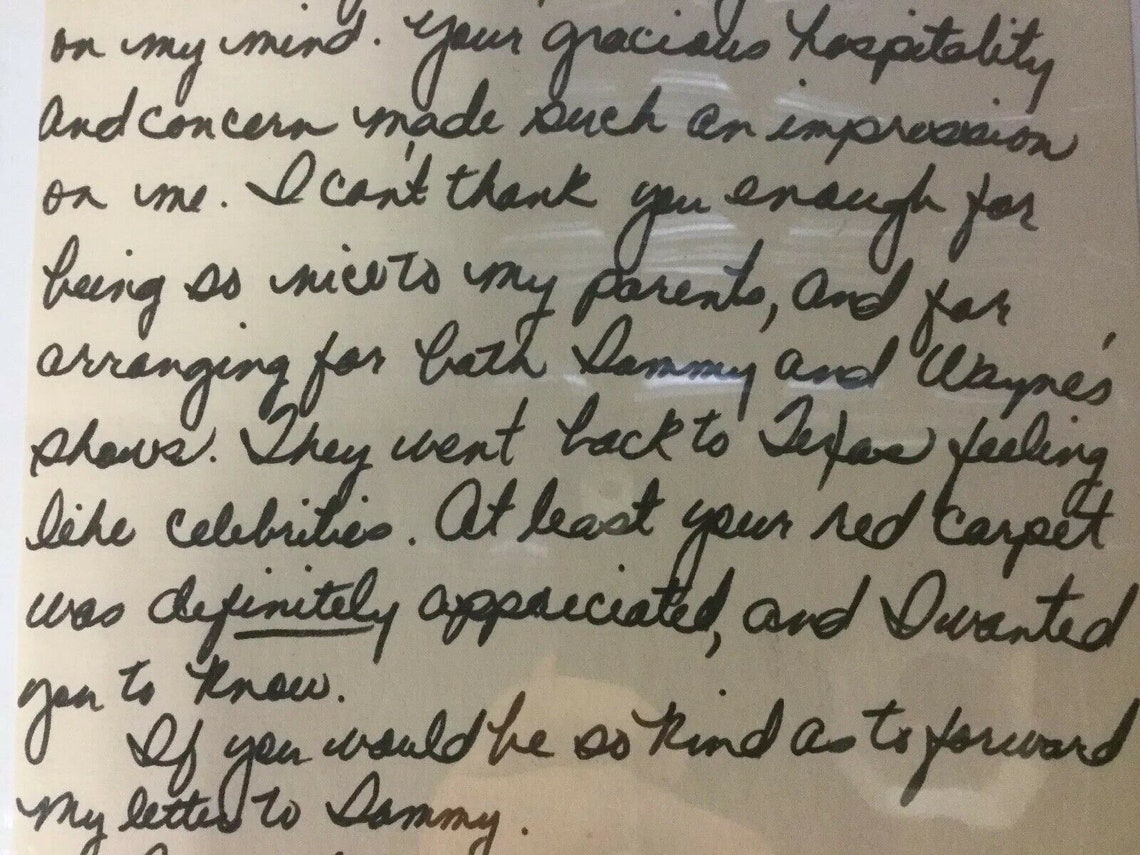 on my mind. Your gracious hospitality
and concern made such an impression
on me. I can't thank you enough for
being so nice to my parents, and for
arranging for both Sammy and Wayne's
shows. They went back to Texas feeling
like celebrities. At least your red carpet
was definitely appreciated, and I wanted
you to know.
If you would be so kind as to forward
my letter to Sammy.